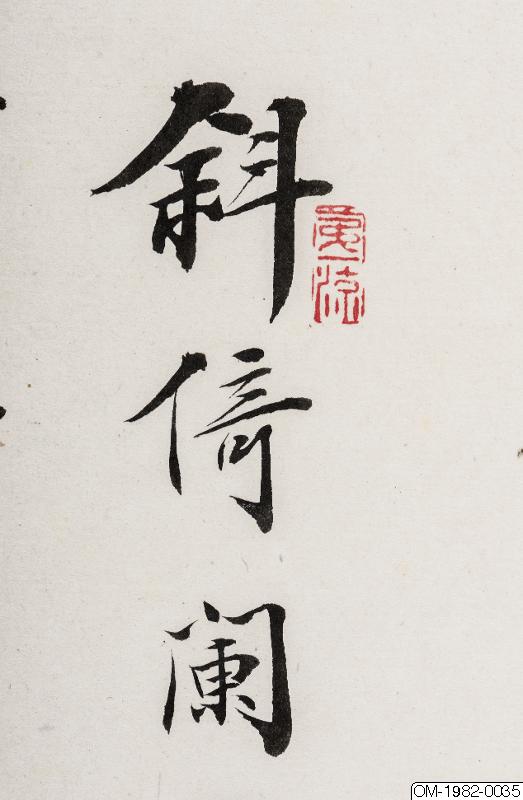 斜倚闌
OM-1982-0035